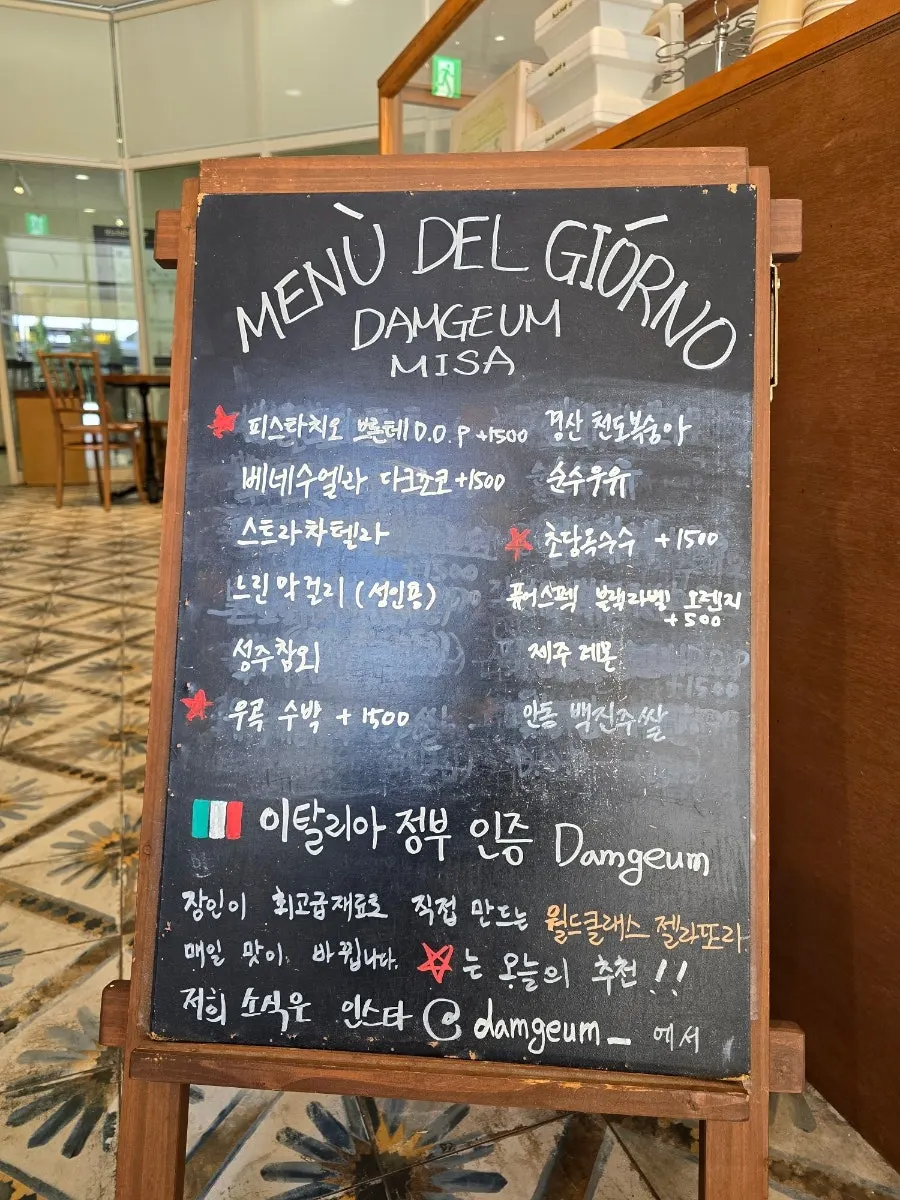 MENÙ DEL GIÓRNO
DAMGEUM
MISA
피스타치오 브론테 D.O.P +1500
베네수엘라 다크쵸코 +1500
스트라챠텔라
느린막걸리 (성인용)
성주참외
우곡 수박 +1500
경산 천도복숭아
순수우유
초당옥수수 +1500
퓨어스펙 블랙라벨 오렌지
+500
제주 레몬
안동 백진주쌀
이탈리아 정부 인증 Damgeum
장인이 최고급재료로 직접 만드는 월드클래스 젤라또라
매일 맛이 바뀝니다. ☆는 오늘의 추천!!
저희 소식은 인스타 @damgeum_ 에서